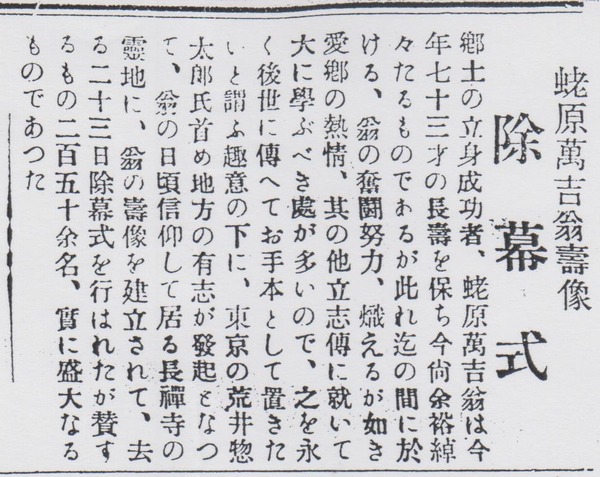 蛯原萬吉翁壽像
除幕式
鄕土の立身成功者、蛯原萬吉翁は今
年七十三才の長壽を保ち今尙余裕綽
々たるものであるが此れ迄の間に於
ける、翁の奮鬪努力、熾えるが如き
愛鄕の熱情、其の他立志傳に就いて
大に學ぶべき處が多いので、之を永
く後世に傳へてお手本として置きた
いと謂ふ趣意の下に、東京の荒井惣
太郎氏首め地方の有志が發起となつ
て、翁の日頃信仰して居る長禪寺の
靈地に、翁の壽像を建立されて、去
る二十三日除幕式を行はれたが賛す
るもの二百五十余名、實に盛大なる
ものであつた